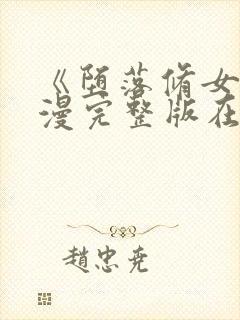 《堕落修女
漫完整版在
趙忠尧